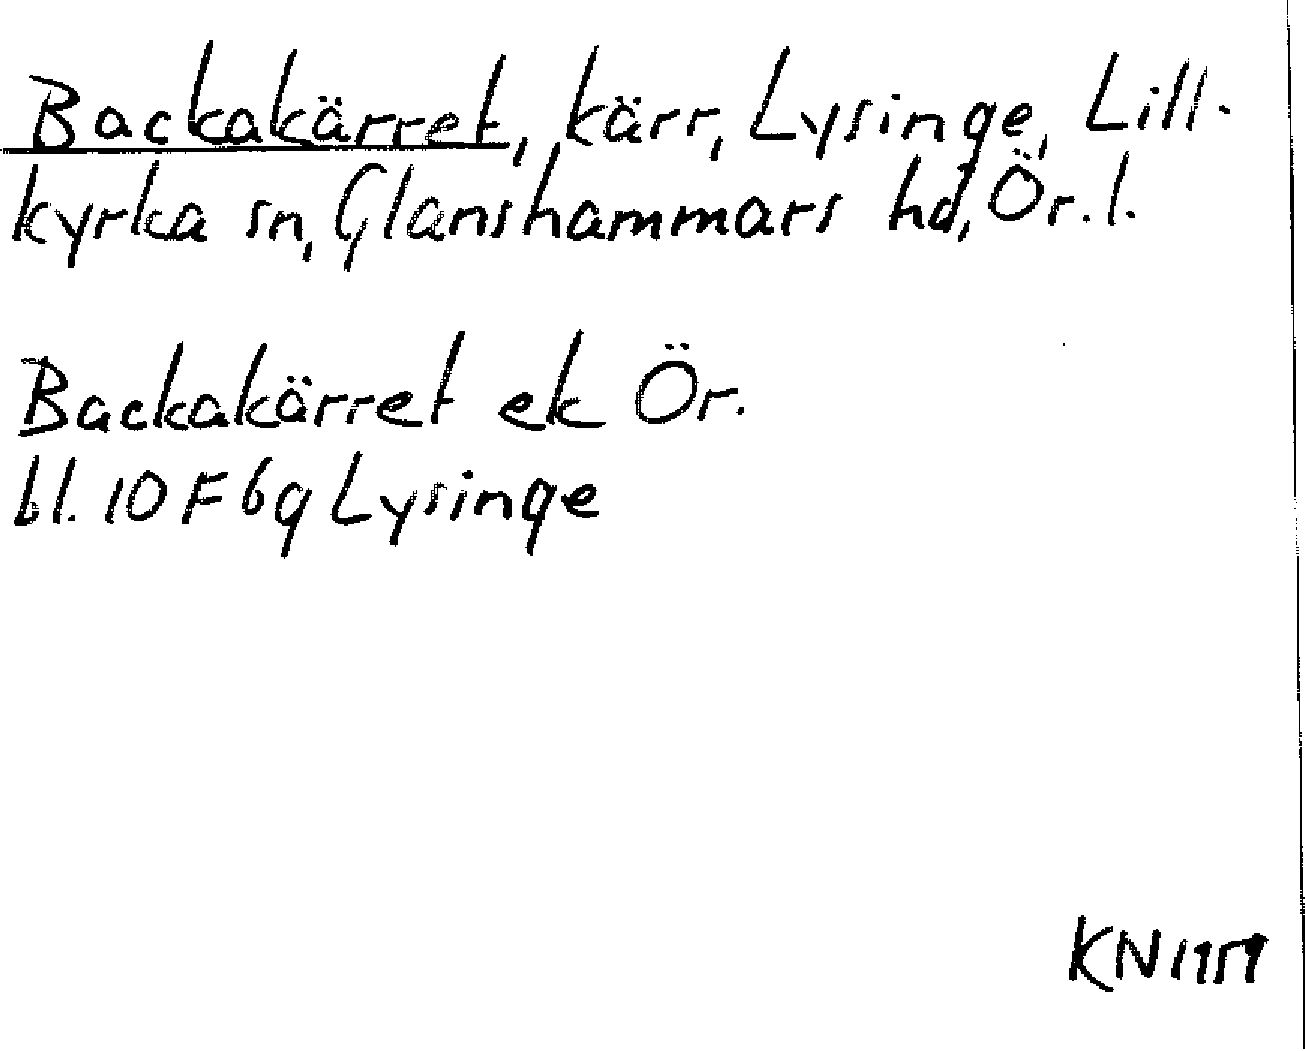 Backakärret, kärr, Lysinge, Lill-
kyrka sn, Glanshammars hd, Ör. l.
Backakärret ek Ör.
bl. 10 F 6g Lysinge
KN 1959